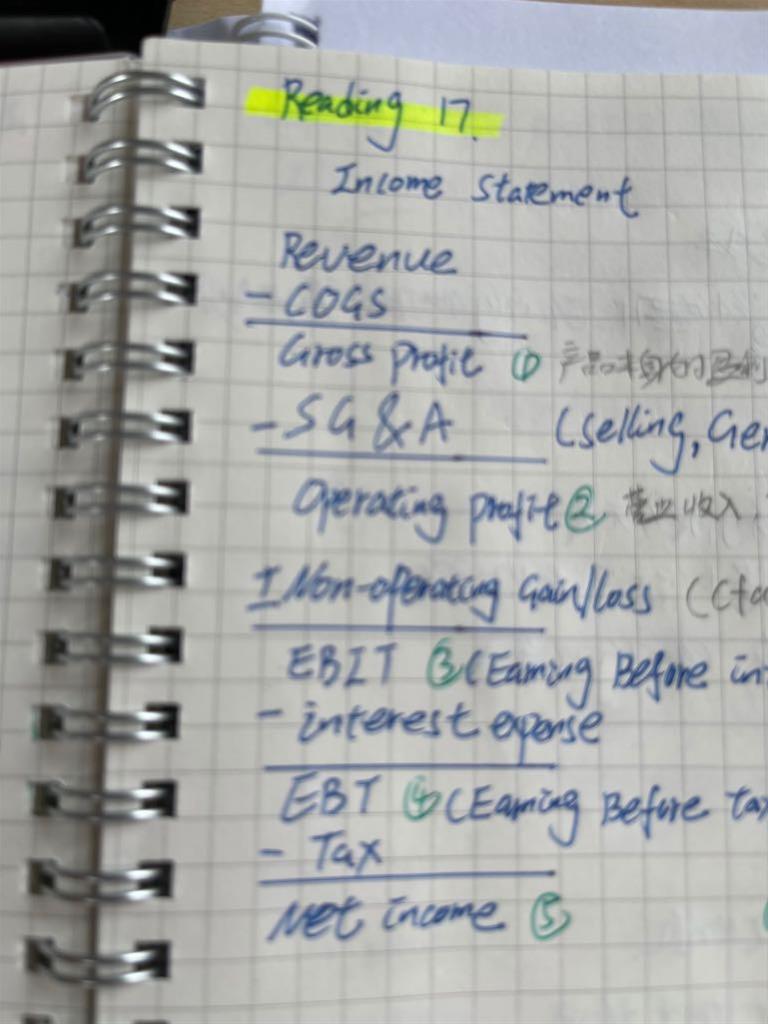 Reading 17.
Income Statement
Revenue
- COGS
Gross profit ① 产品本身的
- SG&A (Selling, Ger
Operating profit ② 营业收入.
± Non-operating Gain/loss (
EBIT ③ (Earning Before in
- interest expense
EBT ④ (Earning Before tax
- Tax
Net income ⑤